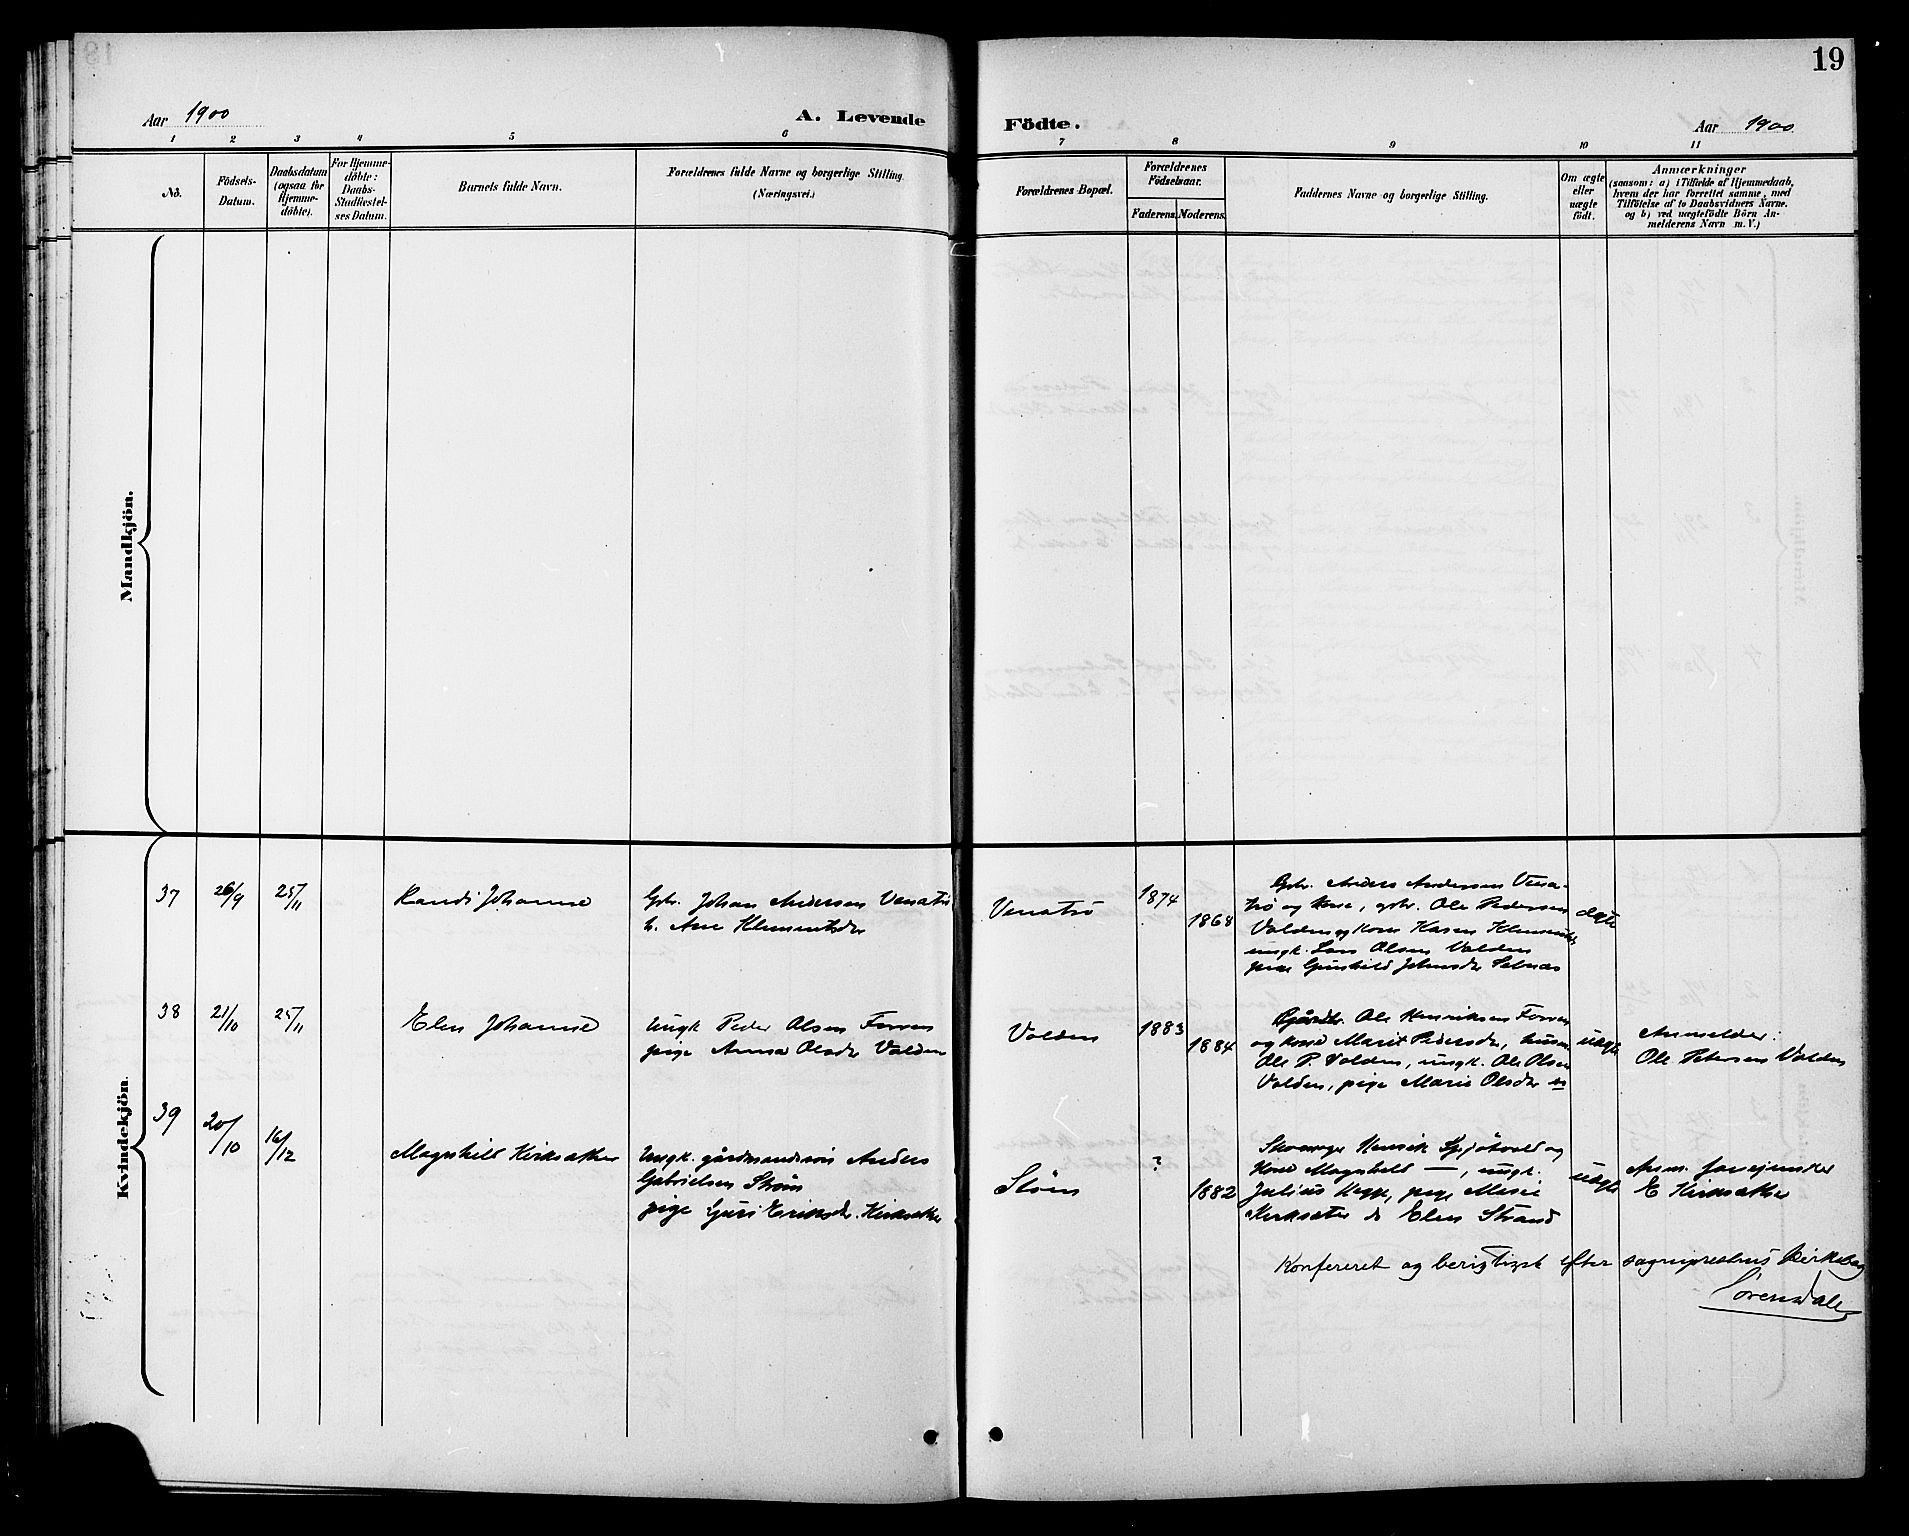 19
Aar 1900
A. Levende
Födte.
Aar 1900
1 2 3 4 5 6 7 8 9 10 11
No.
Födsels-
Datum.
Daabsdatum
(ogsaa for
Hjemme-
döbte).
For Hjemme-
döbte:
Daabs-
Stadfæstel-
ses Datum.
Barnets fulde Navn.
Forældrenes fulde Navne og borgerlige Stilling.
(Næringsvei.)
Forældrenes Bopæl.
Forældrenes
Födselsaar.
Faderens.
Moderens.
Faddernes Navne og borgerlige Stilling.
Om ægte
eller
uægte
födt.
Anmærkninger
(saasom: a) i Tilfælde af Hjemmedaab,
hvem der har forrettet samme, med
Tilföielse af to Daabsvidners Navne.
og b) ved uægtefödte Börn An-
melderens Navn m. V.)
Mandkjön.
Kvindekjön.
37
26/9
25/11
Randi Johanne
Gbr. Johan Andersen Venatrö
h. Ane Klementsdr
Venatrö
1874
1868
Gbr. Anders Andersen Vena-
trö og kone, gbr. Ole Pedersen
Volden og kone Karen Klementsdr
ungk. Lars Olsen Volden
pige Gunhild Johnsdr Selnæs
ægte
38
21/10
25/11
Elen Johanne
Ungk Peder Olsen Forren
pige Anna Olsdr Volden
Volden
1883
1884
Gårdbr. Ole Henriksen Forren
og kone Marit Pedersdr, husm
Ole P. Volden, ungk. Ole Olsen
Volden, pige Marie Olsdr
uægte
Anmelder:
Ole Petersen Volden
39
20/10
16/12
Magnhild Kirksæther
Ungk. gårdmandssön Anders
Gabrielsen Ström
pige Guri Eriksdr. Kirksæther
Ström
?
1882
Henrik Spjötvold og
kone Magnhild —, ungk.
Julius Hagge, pige Marie
Kirksæter do Elen Strand
uægte
Anm.
E Kirksæther
Konfereret og berigtiget efter sogneprestens Kirkebog
Sörensdal